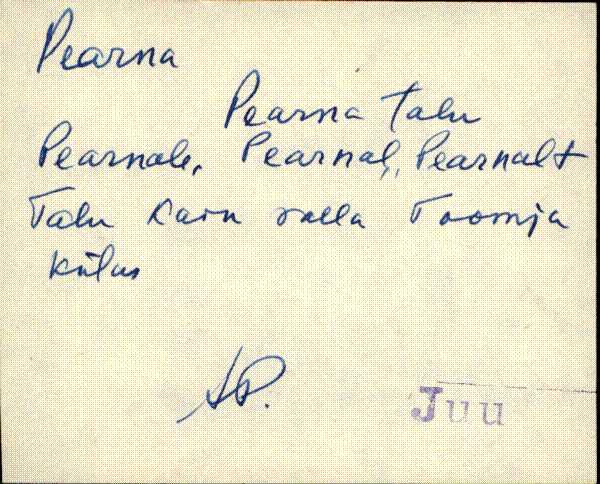 Pearna
Pearna talu
Pearnale, Pearnal, Pearnalt
Talu Kaiu valla Toomja
külas
Juu